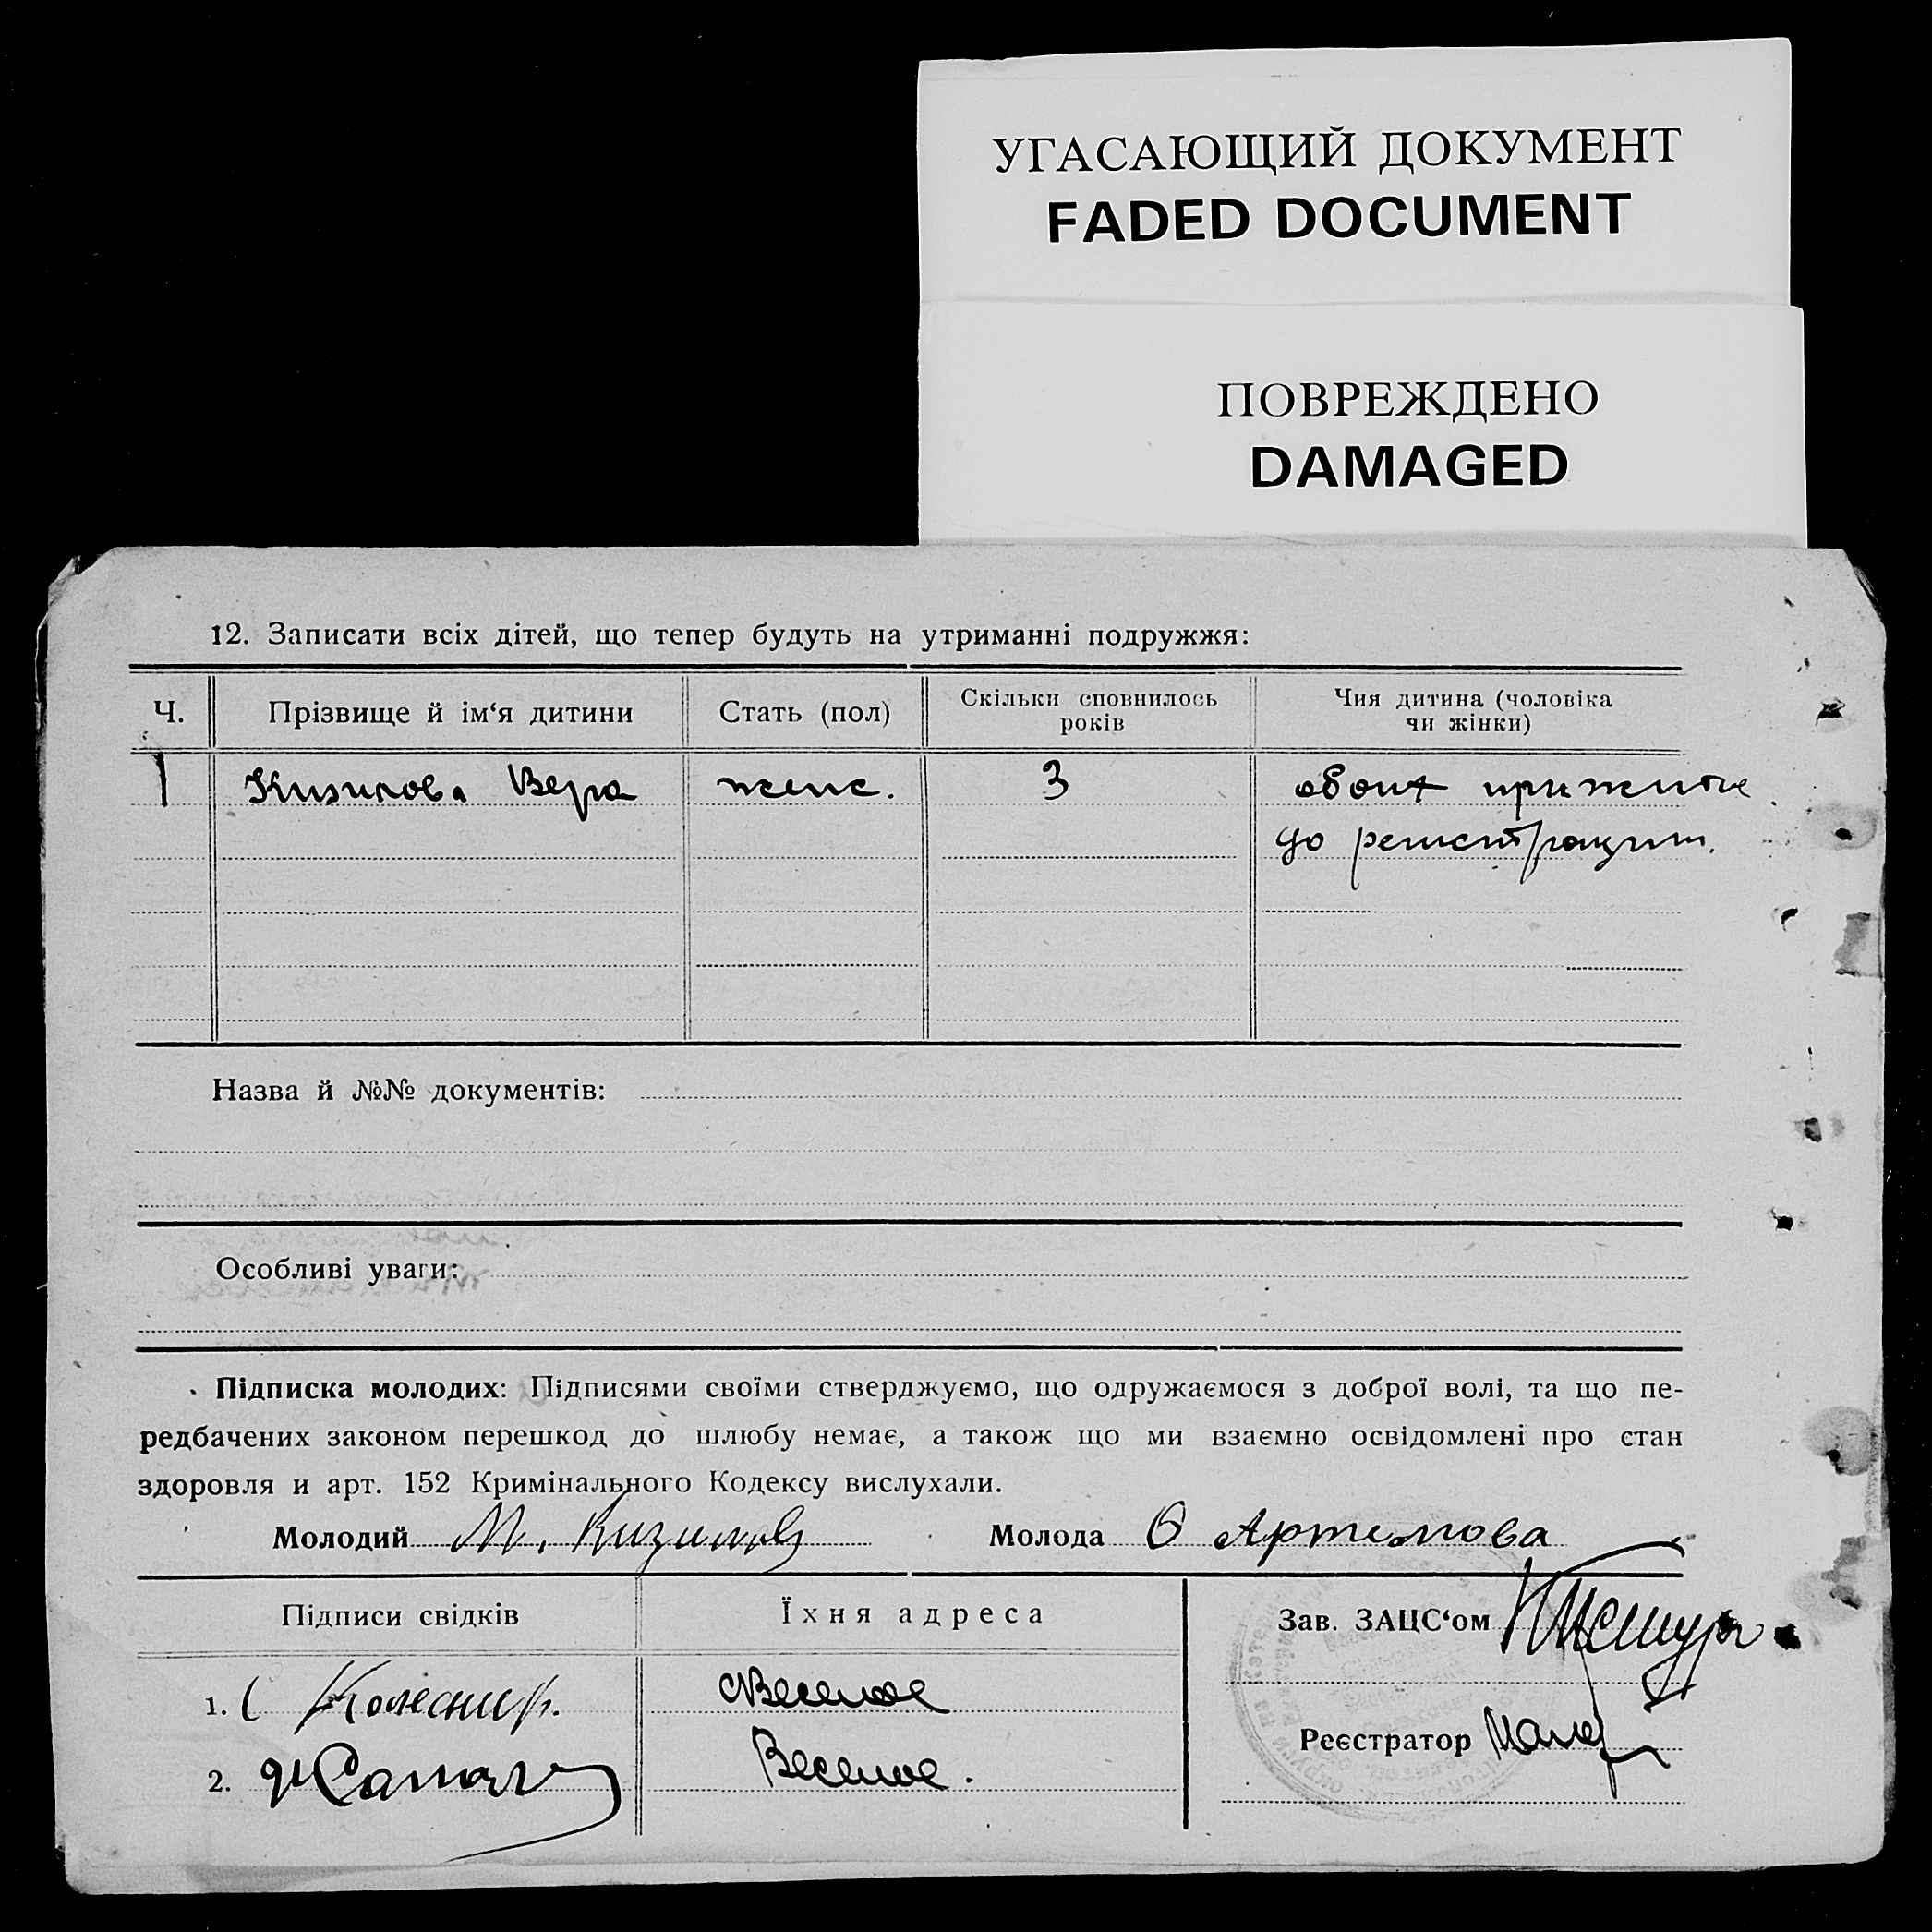 УГАСАЮЩИЙ ДОКУМЕНТ
FADED DOCUMENT
ПОВРЕЖДЕНО
DAMAGED
12. Записати всіх дітей, що тепер будуть на утриманні подружжя:
Ч. Прізвище й ім‘я дитини Стать (пол) Скільки сповнилось років Чия дитина (чоловіка чи жінки)
1 Кизилова Вера женс. 3 обоих прижита
до регистрации.
Назва й №№ документів:
Особливі уваги:
Підписка молодих: Підписями своїми стверджуємо, що одружаємося з доброї волі, та що пе-
редбачених законом перешкод до шлюбу немає, а також що ми взаємно освідомлені про стан
здоровля и арт. 152 Кримінального Кодексу вислухали.
Молодий М. Кизилов Молода О Артемова
Підписи свідків Їхня адреса Зав. ЗАЦС‘ом
1. Колесник. Веселое
Реєстратор
2. Веселое.